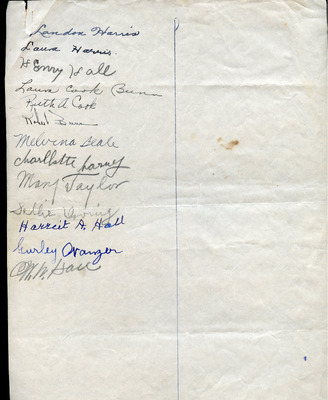 Landon Harris
Laura Harris.
Henry Hall
Laura Cook Bunn
Ruth A Cook
Robert Bunn
Melvina Beale
Charllotte Barney
Mary Taylor
Sallie
Harreit A. Hall
Curley Oranger
Hall